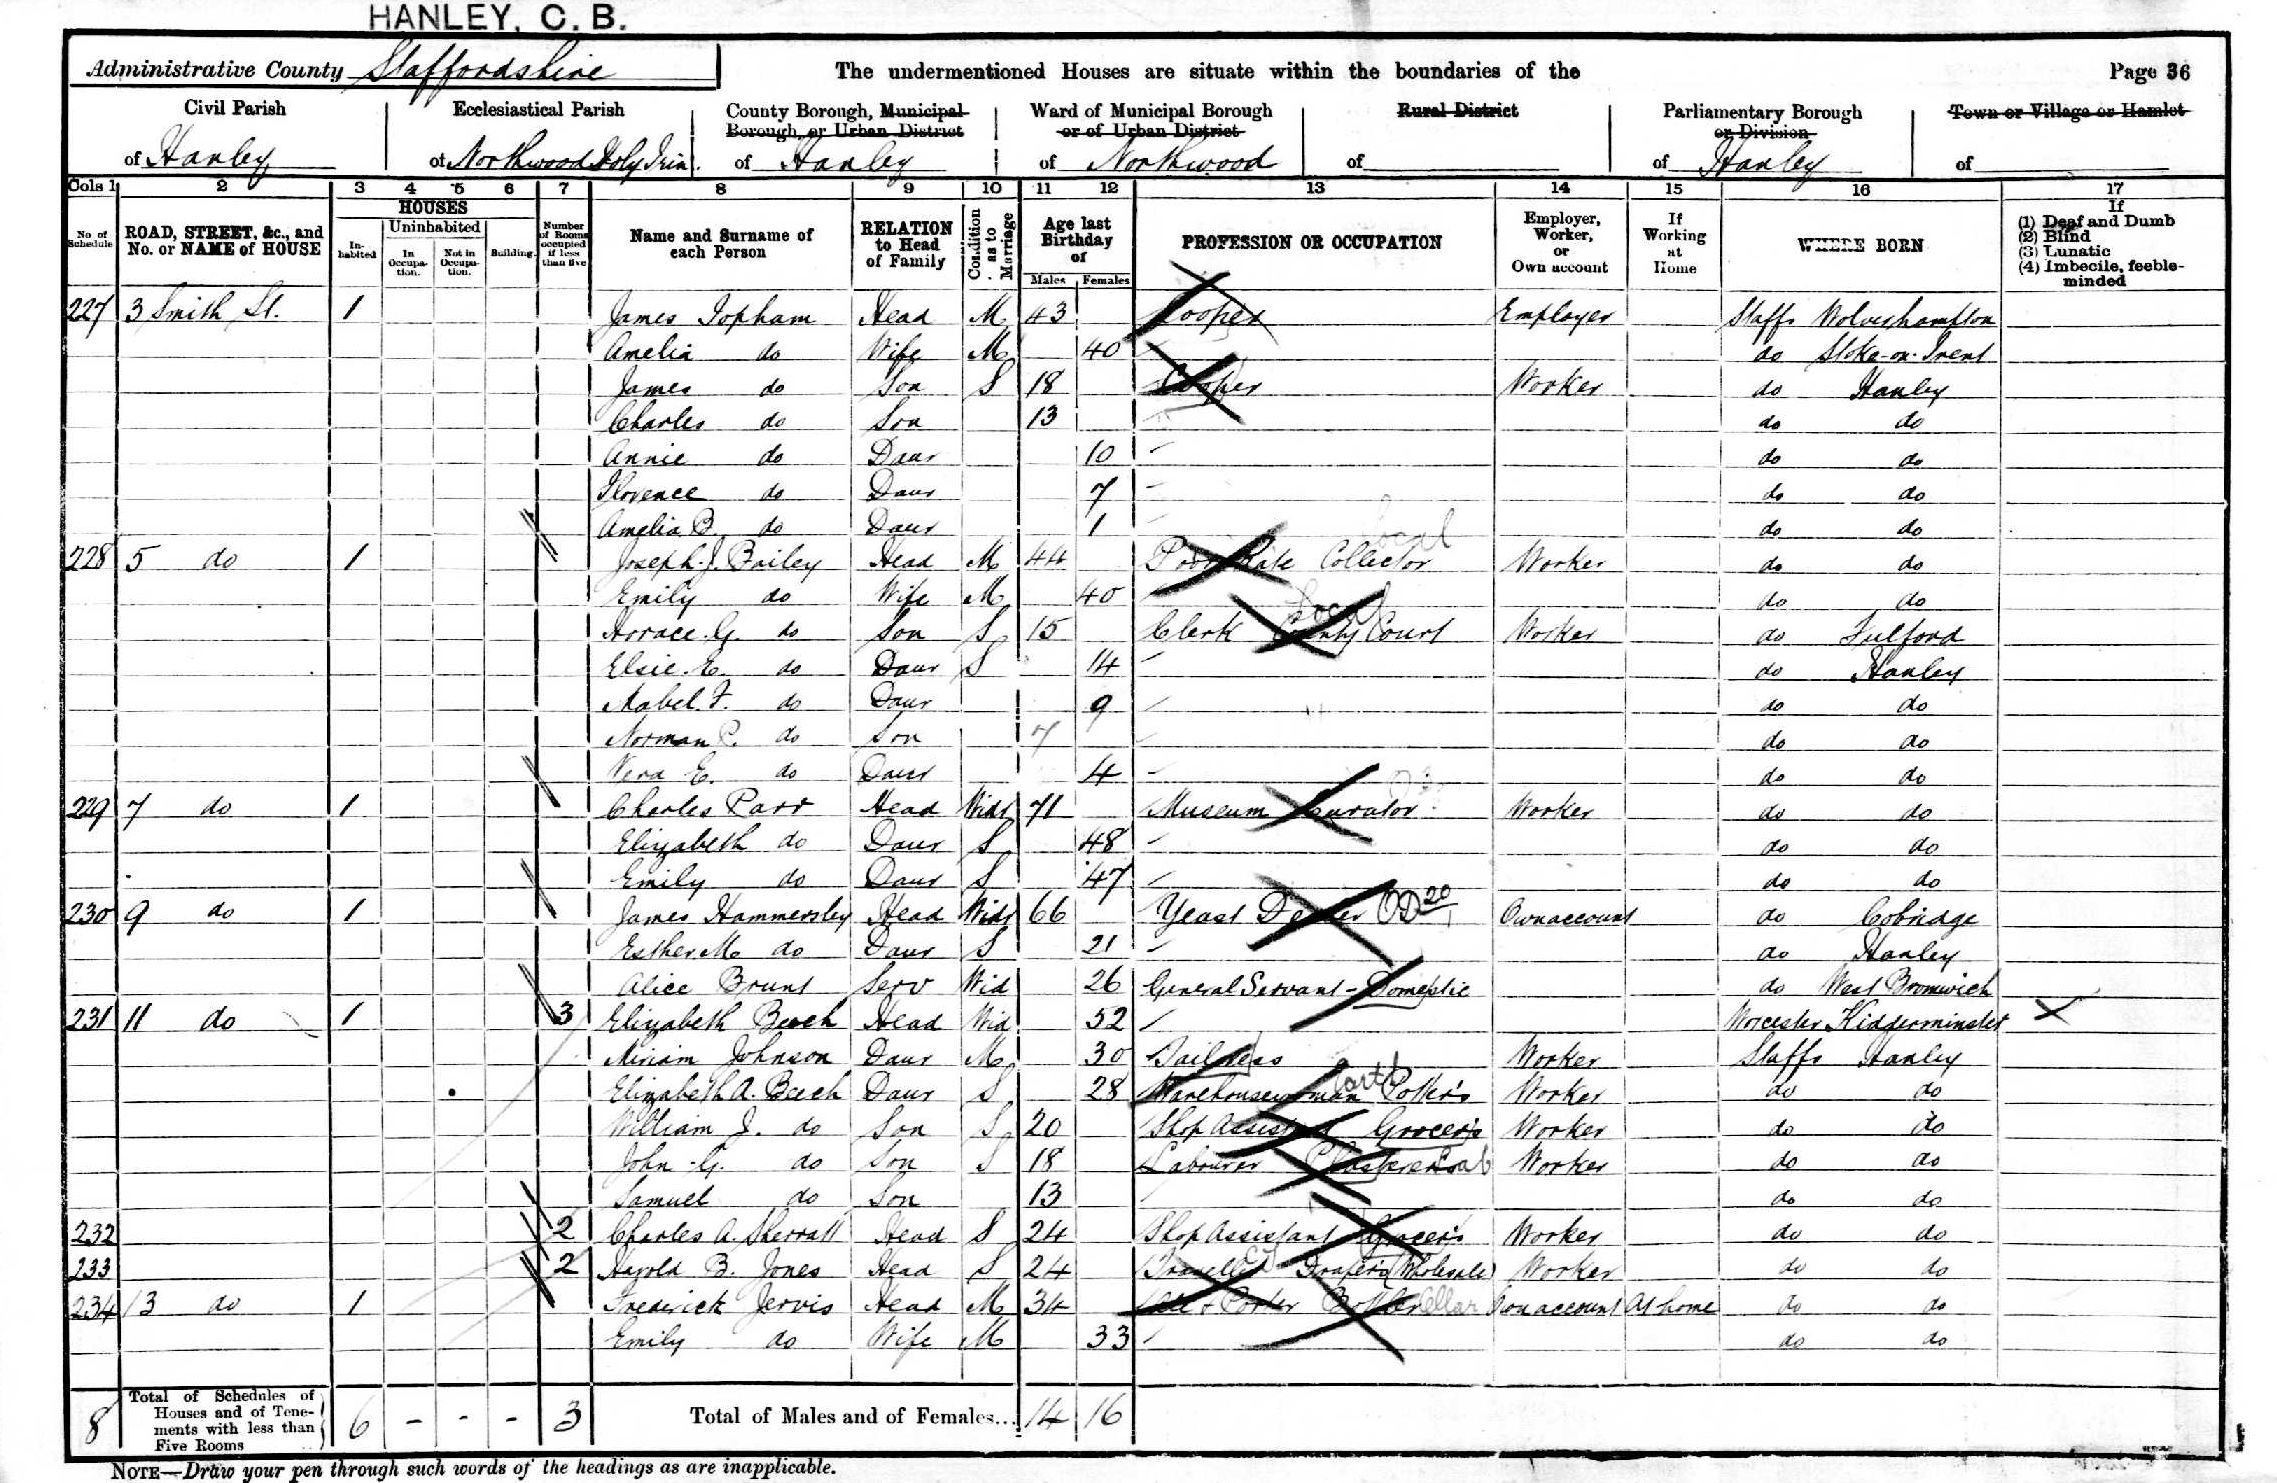 HANLEY, C. B.
Administrative County Staffordshire The undermentioned Houses are situate within the boundaries of the Page 36
Civil Parish Ecclesiastical Parish County Borough, Municipal Borough, or Urban District Ward of Municipal Borough or of Urban District Rural District Parliamentary Borough or Division Town or Village or Hamlet
of Hanley of Northwood Holy Trin. of Hanley of Northwood of of Hanley of
Cols 1 2 3 4 5 6 7 8 9 10 11 12 13 14 15 16 17
No. of Schedule ROAD, STREET, &c., and No. or NAME of HOUSE HOUSES Inhabited Uninhabited In Occupation. Not in Occupation. Building. Number of Rooms occupied if less than five Name and Surname of each Person RELATION to Head of Family Condition as to Marriage Age last Birthday of Males Females PROFESSION OR OCCUPATION Employer, Worker, or Own account If Working at Home WHERE BORN If (1) Deaf and Dumb (2) Blind (3) Lunatic (4) Imbecile, feeble-minded
227 3 Smith St. 1 James Topham Head M 43 Cooper Employer Staffs Wolverhampton
Amelia do Wife M 40 do Stoke-on-Trent
James do Son S 18 Cooper Worker do Hanley
Charles do Son 13 do do
Annie do Daur 10 do do
Florence do Daur 7 do do
Amelia B. do Daur 1 do do
228 5 do 1 Joseph J. Bailey Head M 44 Poor Rate Collector Local Worker do do
Emily do Wife M 40 do do
Horace G. do Son S 15 Clerk County Court Local Worker do Fulford
Elsie E. do Daur S 14 do Hanley
Mabel F. do Daur 9 do do
Norman P. do Son 7 do do
Vera E. do Daur 4 do do
229 7 do 1 Charles Parr Head Widr 71 Museum Curator Worker do do
Elizabeth do Daur S 48 do do
Emily do Daur S 47 do do
230 9 do 1 James Hammersley Head Widr 66 Yeast Dealer OD 20 Own account do Cobridge
Esther M do Daur S 21 do Hanley
Alice Brunt Serv Wid 26 General Servant - Domestic do West Bromwich
231 11 do 1 3 Elizabeth Beech Head Wid 52 Worcester Kidderminster
Miriam Johnson Daur M 30 Tailoress Worker Staffs Hanley
Elizabeth A. Beech Daur S 28 Warehousewoman Potter's Earth Worker do do
William J. do Son S 20 Shop Assistant Grocer's Worker do do
John G. do Son S 18 Labourer Plasterer Lab Worker do do
Samuel do Son 13 do do
232 2 Charles A. Sherratt Head S 24 Shop Assistant Grocer's Worker do do
233 2 Harold B. Jones Head S 24 Traveller Draper's (Wholesale) Worker do do
234 13 do 1 Frederick Jervis Head M 34 Ale & Porter Bottler Cellar Own account At home do do
Emily do Wife M 33 do do
8 Total of Schedules of Houses and of Tenements with less than Five Rooms 6 - - - 3 Total of Males and of Females... 14 16
NOTE—Draw your pen through such words of the headings as are inapplicable.